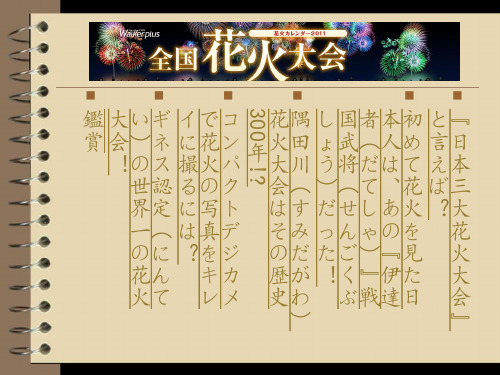 Walkerplus
花火カレンダー2011
全国花火大会
『日本三大花火大会』
と言えば？
初めて花火を見た日
本人は、あの『伊達
者（だてしゃ）』戦
国武将（せんごくぶ
しょう）だった！
隅田川（すみだがわ）
花火大会はその歴史
300年！？
コンパクトデジカメ
で花火の写真をキレ
イに撮るには？
ギネス認定（にんて
い）の世界一の花火
大会！
鑑賞